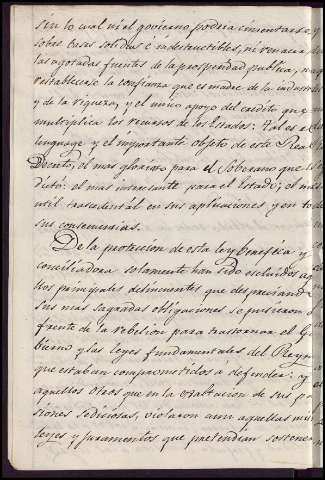 sin lo cual ni al govierno podria cimentarse
sobre bases solidas é indestructibles, ni renacer
las agotadas fuentes de la prosperidad publica, ni
restablecerse la confianza que es madre de la industria
y de la riqueza, y el unico apoyo del credito que
multiplica los recursos de los Estados: tal es el
lenguage y el importante objeto de este Real
Decreto, el mas glorioso para el Soberano que lo
dictó: el mas interesante para el Estado; el mas
util trascedental en sus aplicaciones y en to
sus consecuencias.
De la proteccion de esta ley benefica y
conciliadora solamente han sido escluidos aque
llos principales delincuentes que despreciando
sus mas sagradas obligaciones se pusieron al
frente de la rebelion para trastornar el Go
bierno y las leyes fundamentales del Reyno
que estaban comprometidos a defender: y
aquellos otros que en la exaltacion de sus pa
siones sediciosas, violaron aun aquellas mis
leyes y juramentos que pretendian sostener